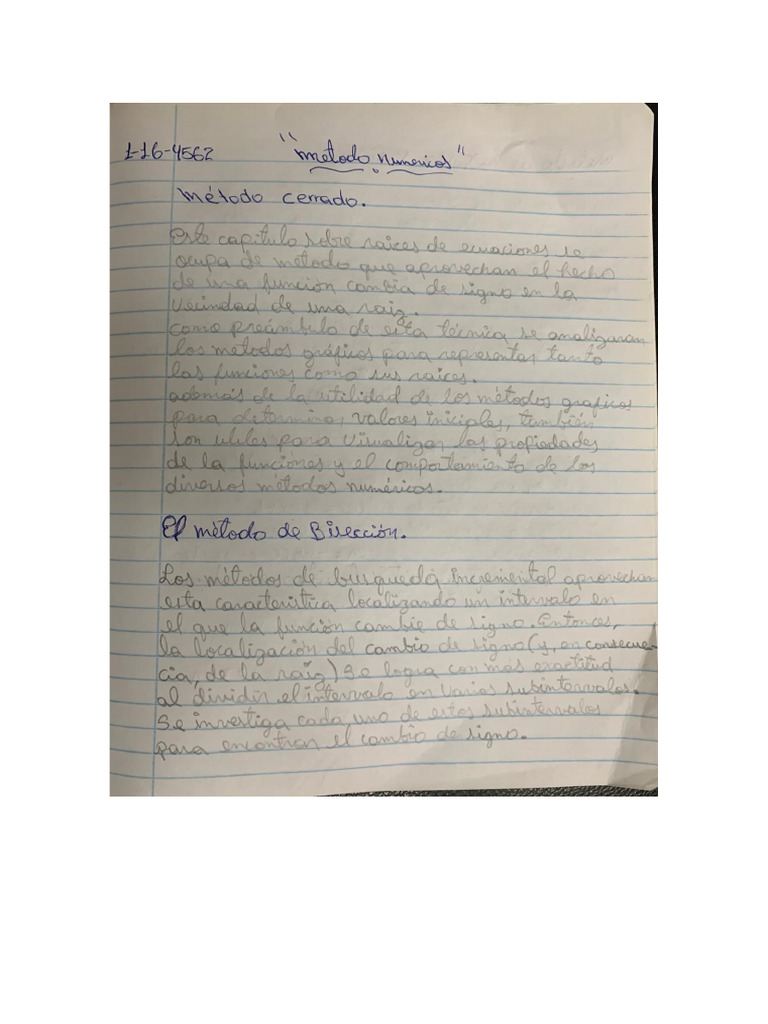 1-16-4562 "metodo numericos"
Método cerrado.
Este capitulo sobre raices de ecuaciones se
ocupa de metodo que aprovechan el hecho
de una función cambia de signo en la
vecindad de una raiz.
como preámbulo de esta técnica se analizaran
los metodos gráficos para representar tanto
las funciones como sus raices.
además de la utilidad de los métodos graficos
para determinar valores iniciales, también
son utiles para visualizar las propiedades
de la funciones y el comportamiento de los
diversos métodos numéricos.
El método de Bisección.
Los métodos de busqueda incremental aprovechan
esta caracteristica localizando un intervalo en
el que la función cambie de signo. Entonces,
la localización del cambio de signo (y, en consecuen-
cia, de la raiz) se logra con más exactitud
al dividir el intervalo en varios subintervalos.
Se investiga cada uno de estos subintervalos
para encontrar el cambio de signo.